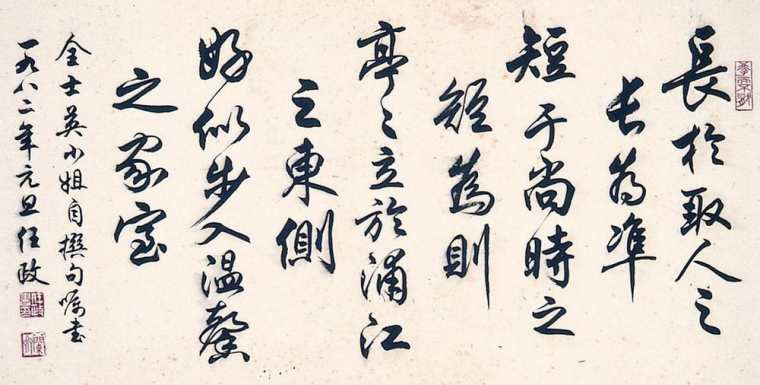 長於取人之
长為準
短于尚時之
短為則
亭〻立於浦江
之東側
好似步入温馨
之家室
全士英小姐自撰句嘱书
一九八二年元旦任政